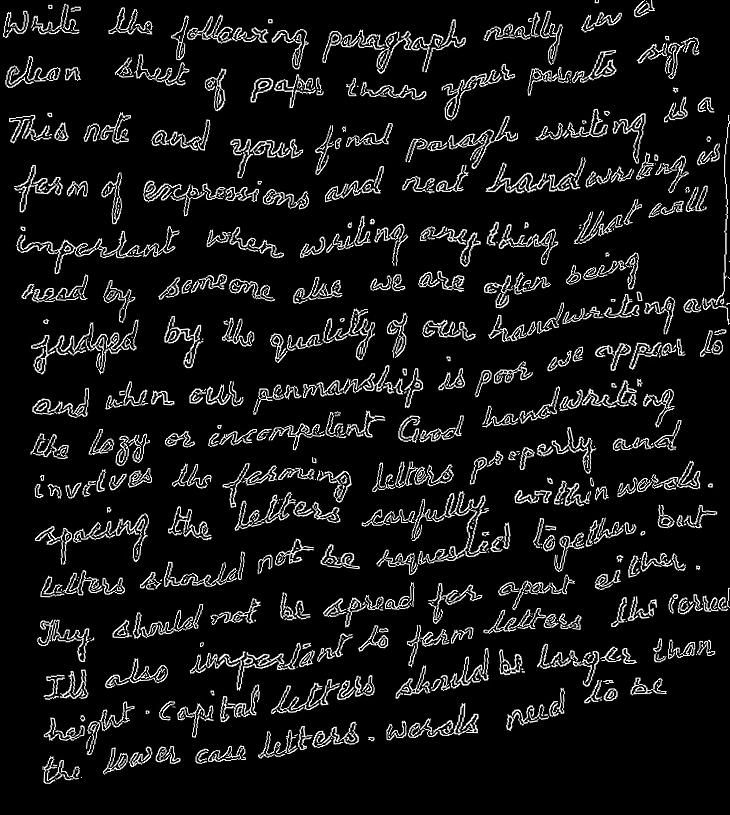 Write the following paragraph neatly in a
clean sheet of paper than your parents sign
This note and your final paragh writing is a
form of expressions and neat handwriting is
important when writing any thing that will
read by someone else we are often being
judged by the quality of our handwriting and
and when our penmanship is poor we appear to
the lazy or incompetent Good handwriting
involves the forming letters properly and
spacing the letters carefully within words.
letters should not be requested together. but
They should not be spread far apart either.
It's also important to form letters the correct
height. Capital letters should be larger than
the lower case letters. words need to be